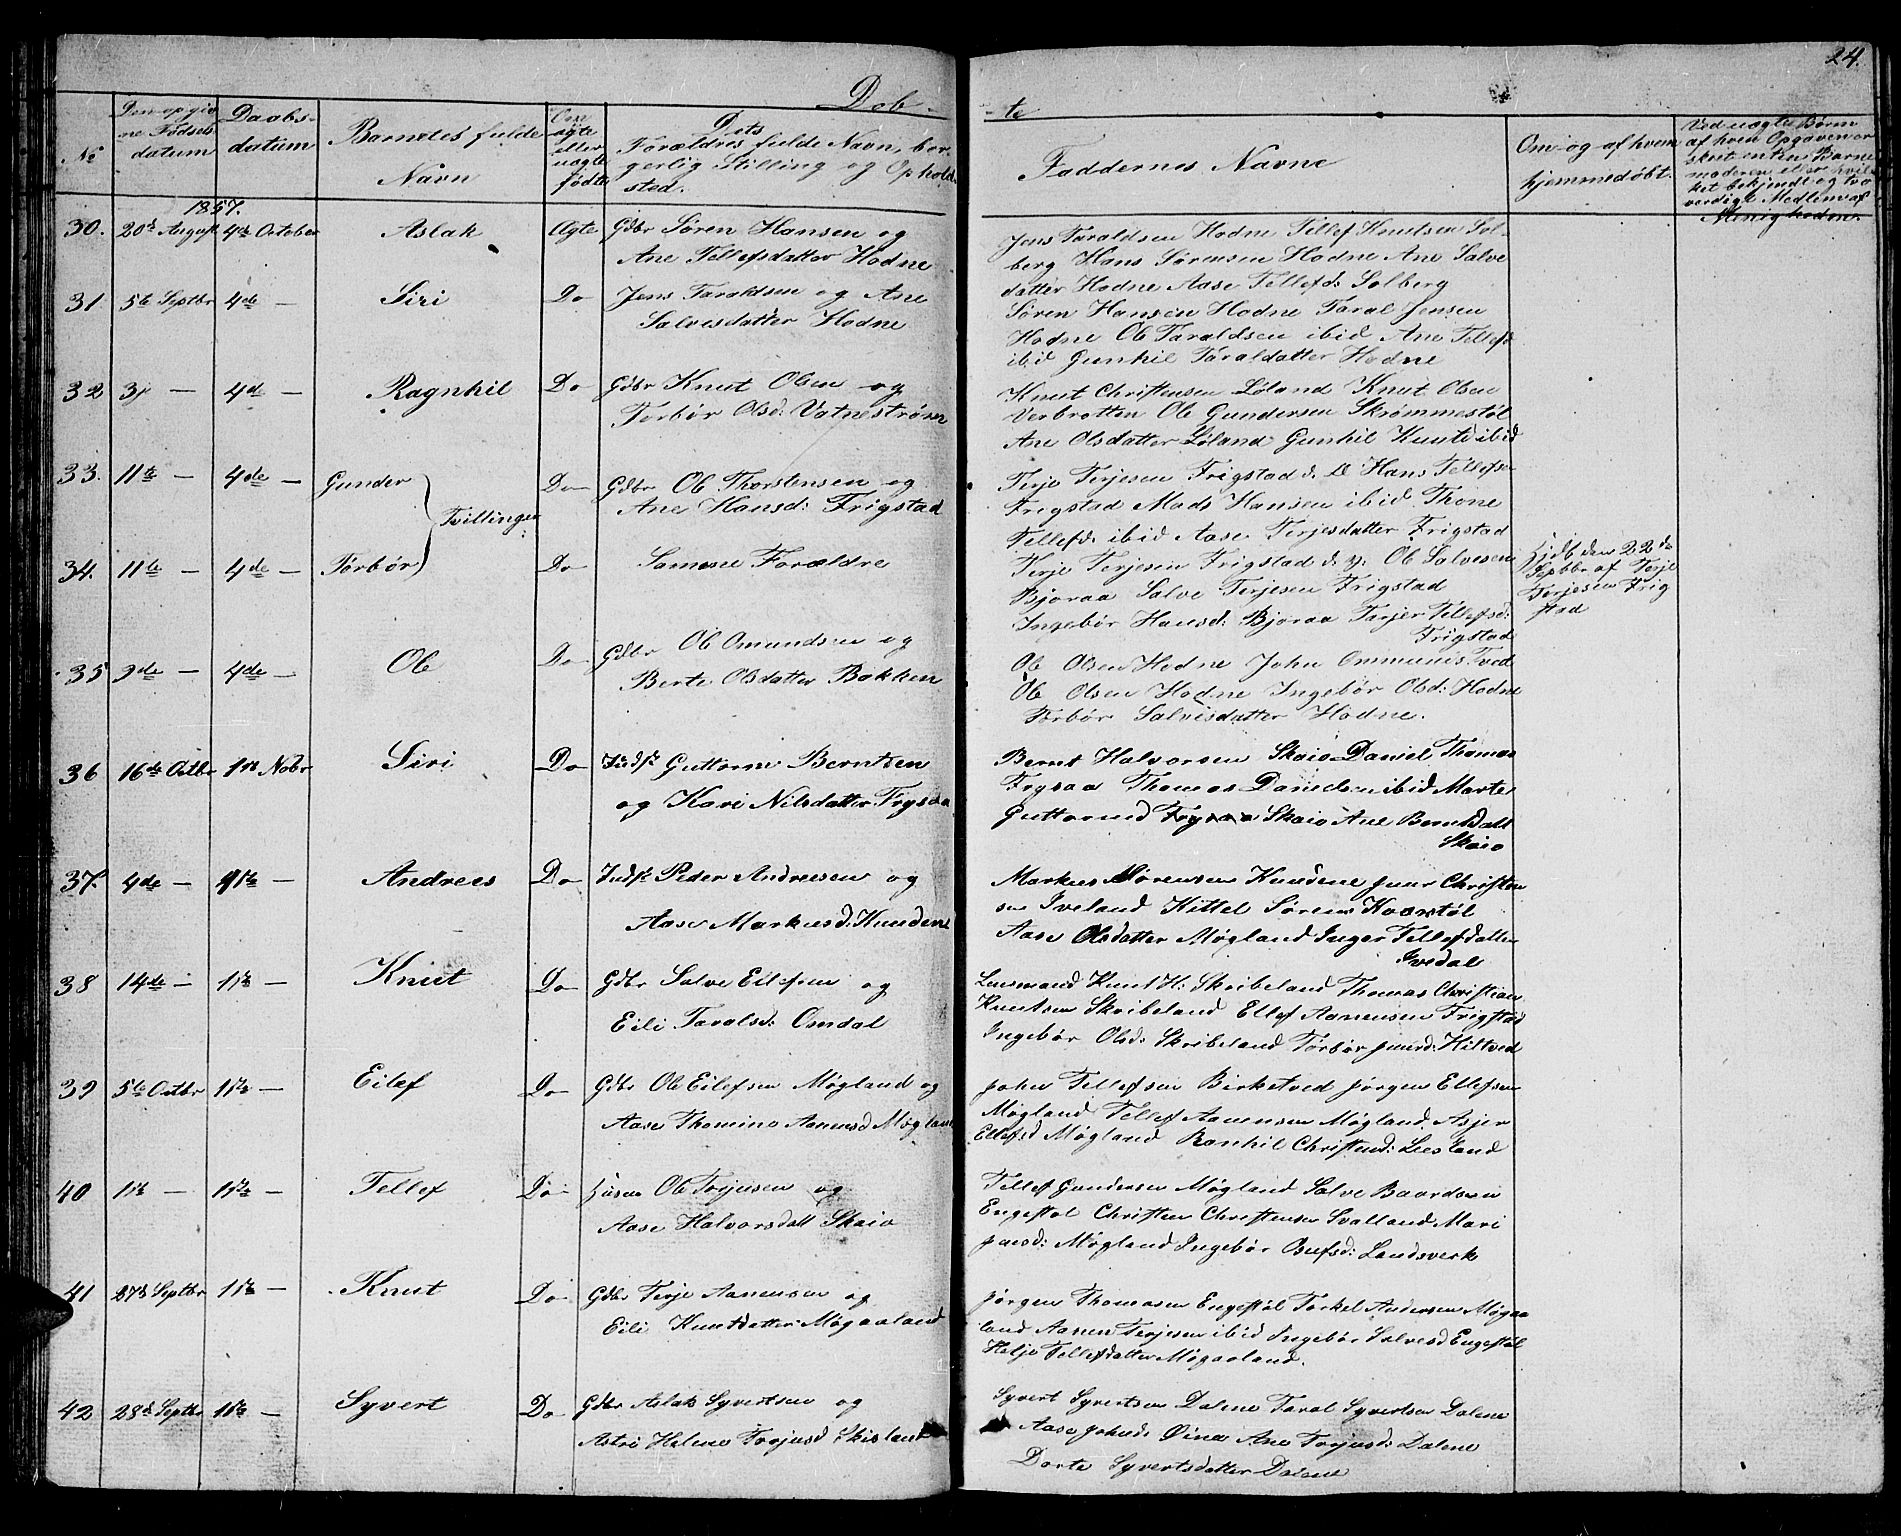 24.
Døb-
-te
No
Den opgiv
ne Fødsels
datum
Daabs-
datum
Barnets fulde
Navn
Om
ægte
eller
uægte
fødte
Dets
Forældres fulde Navn, bor-
gerlig Stilling og Ophold
sted.
Faddernes Navne
Om og af hvem
hjemmedøbt.
Ved uægte Børn
af hvem Opgaven er
skeet enten Barne
moderen eller hvil
ket bekjendt og tro
værdigt Medlem af
Menigheden.
1857.
30. 20de August 4de October Aslak Ægte Gdbr Søren Hansen og
Ane Tellefsdatter Hodne
Jens Taraldsen Hodne Tellef Knutsen Sol-
berg Hans Sørensen Hodne Ane Salve
datter Hodne Aase Tellefsd: Solberg
31. 5te Septbr 4de - Siri Do Jens Taraldsen og Ane
Salvesdatter Hodne
Søren Hansen Hodne Taral Jensen
Hodne Ole Taraldsen ibid Ane Tellefsd
ibid Gunhil Taraldatter Hodne
32 3j - 4de - Ragnhil Do Gdbr Knut Olsen og
Torbør Olsd: Vatnestrøm
Knut Christensen Løland Knut Olsen
Verbrotten Ole Gundersen Skrømmestøl
Ane Olsdatter Løland Gunhil Knutsd ibid
33. 11te - 4de - Gunder Do Gdbr Ole Thorstensen og
Tvillinger
Ane Hansd: Frigstad
Terje Terjesen Frigstad d. Æ Hans Tellefsen
Frigstad Mads Hansen ibid Thone
Tellefsd: ibid Aase Terjesdatter Frigstad
34. 11te - 4de - Torbør Do Samme Forældre
Terje Terjesen Frigstad d. y. Ole Salvesen
Bjoraa Salve Terjesen Frigstad
Ingebør Hansd: Bjoraa Tarjer Tellefsd:
Frigstad
Hjdbt den 22de
Septbr af Terje
Terjesen Frig
stad
35 9de - 4de - Ole Do Gdbr Ole Omundsen og
Berte Olsdatter Bakken
Ole Olsen Hodne John Ommunds Tved
Ole Olsen Hodne Ingebør Olsd: Hodne
Torbør Salvesdatter Hodne.
36 16de Octbr 1ste Nobr Siri Do Indst Guttorm Berntsen
og Kari Nilsdatter Frysaa
Bernt Halvorsen Skaio Daniel Thomas
Frysaa Thomas Danielsen ibid Marte
Guttormsd Frysaa Skaio Ane Berntsdatt
Skaio
37. 4de - 1ste - Andrees Do Indst Peder Andresen og
Aase Markusd: Hundene
Markus Mørensen Hundene Christen
sen Iveland Kittel Sørens Kvarstøl
Aase Olsdatter Møgland Inger Tellefsdatter
Ivedal
38 14de - 1ste - Knut Do Gdbr Salve Eilefsen og
Eili Taralsd: Omdal
Lensmand Knut H: Skribeland Thomas Christian
Knutsen Skribeland Ellef Aanensen Frigstad
Ingebør Olsd: Skribeland Torbør Hiltved
39 5te Octbr 1ste - Eilef Do Gdbr Ole Eilefsen Møgland og
Aase Thomine Aanensd Møgland
John Tellefsen Birketved Jørgen Ellefsen
Møgland Tellef Aanensen Møgland Asjer
Ellefsd Møgland Ranhil Christensd: Leesland
40 1ste - 1ste - Tellef Do Husm Ole Terjesen og
Aase Halvorsdatt Skaio
Tellef Gundersen Møgland Salve Baardsen
Engestøl Christen Christensen Svalland Mari
Møgland Ingebør Osufsd: Landsverk
41 27de Septbr 1ste - Knut Do Gdbr Terje Aanensen og
Eili Knutsdatter Møgaaland
Jørgen Thomasen Engestøl Torkel Andersen Møgaa
land Aanen Terjesen ibid Ingebør Salvesd Engestøl
Helje Tellefsdatter Møgaaland.
42 28de Septbr 1ste - Syvert Do Gdbr Aslak Syvertsen og
Astri Helene Terjusd Skisland
Syvert Syvertsen Dalene Taral Syvertsen Dalene
Aase Johnsd: Øina Ane Terjusd: Dalene
Dorte Syvertsdatter Dalene